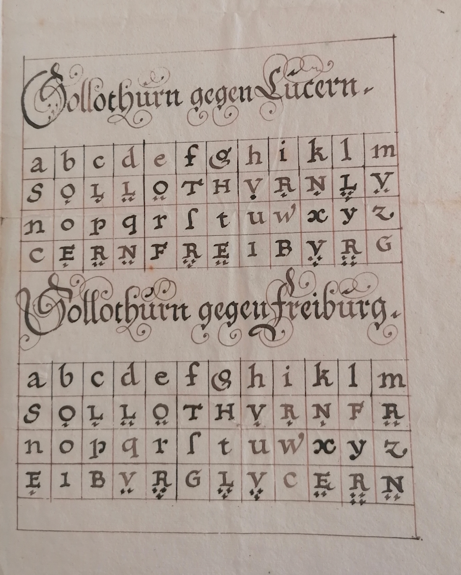 Sollothurn gegen Lucern.
a b c d e f g h i k l m
S O L L O T H V R N L V
n o p q r ſ t u w x y z
C E R N F R E I B V R G
Sollothurn gegen freiburg.
a b c d e f g h i k l m
S O L L O T H V R N F R
n o p q r ſ t u w x y z
E I B V R G L V C E R N